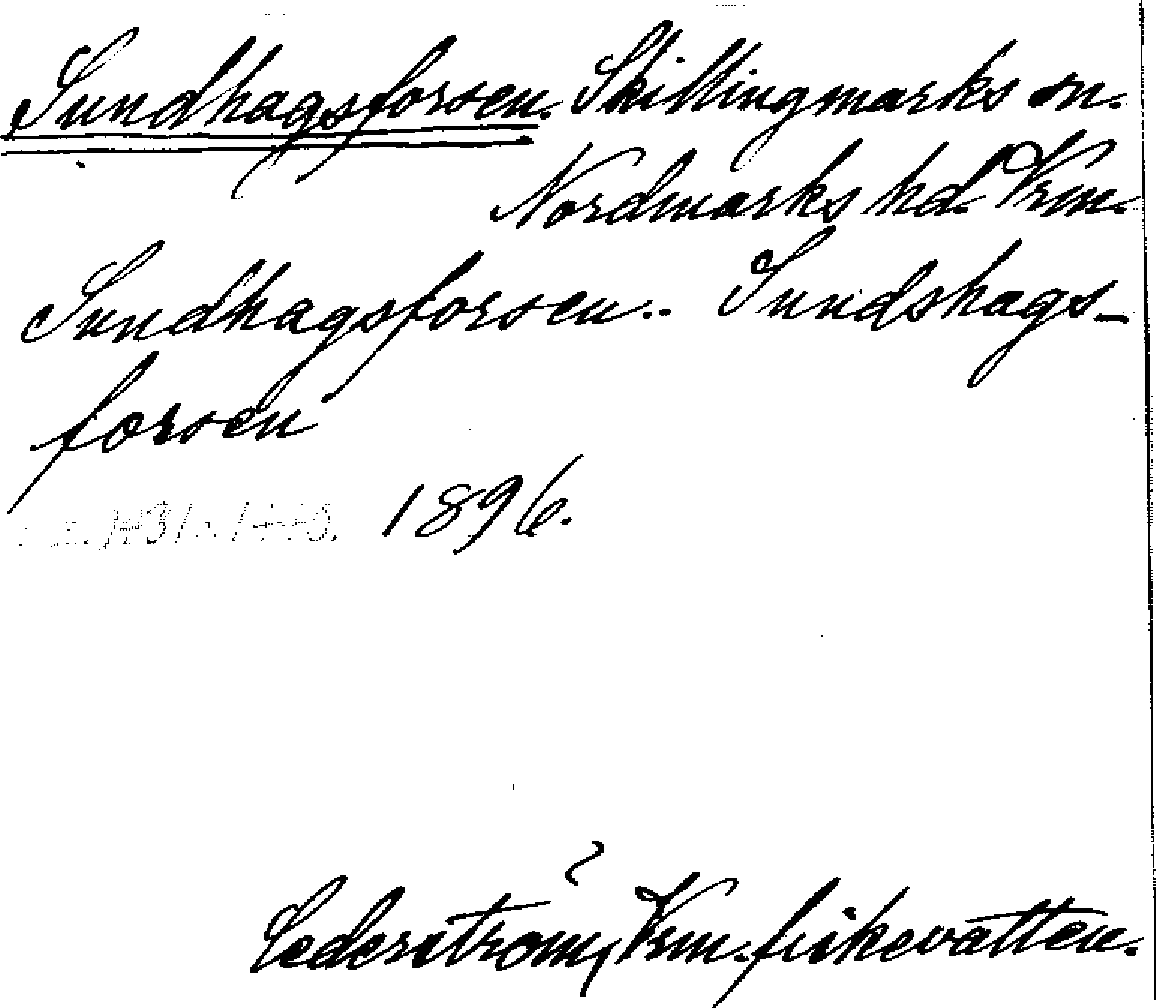 Sundhagsforsen. Skillingmarks sn.
Nordmarks hd. Vrm.
Sundhagsforsen.. Sundshags-
forsen
1896.
Cederström, Vrm. fiskevatten.